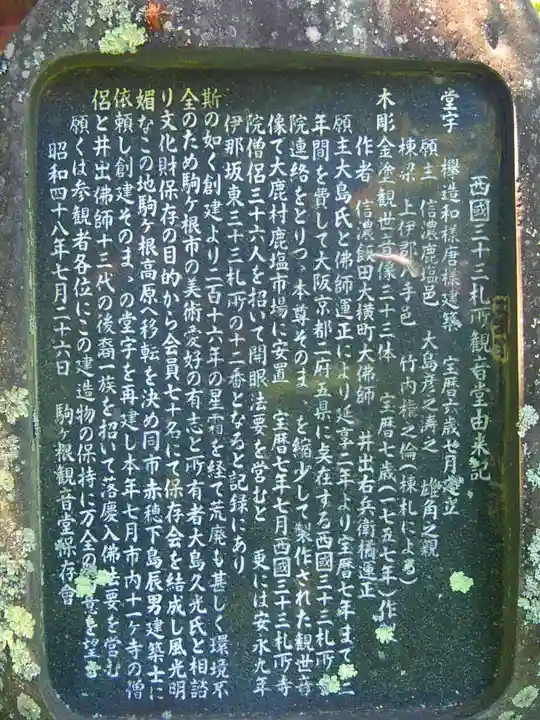 西國三十三札所觀音堂由来記
堂宇　欅造和様唐様建築　宝暦六歳七月建立
願主　信濃鹿塩邑　大島彦之濤之　雄角之親
棟梁　上伊那八手邑　竹内権之倫(棟札による)
木彫金塗觀世音像三十三体　宝暦七歳(一七五七年)作
作者　信濃飯田大横町大佛師　井出右兵衛橘運正
願主大島氏と佛師運正により延享二年より宝暦七年まで十二
年間を費して大阪京都二府五県に実在する西國三十三札所寺
院連絡をとりつゝ本尊そのまゝを縮少して製作された觀世音
像で大鹿村鹿塩市場に安置　宝暦七年七月西國三十三札所寺
院僧侶三十六人を招いて開眼法要を営むと　更には安永九年
伊那坂東三十三札所の十二番となると記録にあり
斯の如く創建より二百十六年の星霜を経て荒廃も甚しく環境不
全のため駒ヶ根市の美術愛好の有志と所有者大島久光氏と相談
り文化財保存の目的から会員七十名にて保存会を結成し風光明
媚なこの地駒ヶ根高原へ移転を決め同市赤穂下島辰男建築士に
依頼し創建そのまゝの堂宇を再建し本年七月市内十一ヶ寺の僧
侶と井出佛師十三代の後裔一族を招いて落慶入佛法要を営む
願くば参観者各位にこの建造物の保持に万全の意を望む
昭和四十八年七月二十六日　駒ヶ根觀音堂保存會